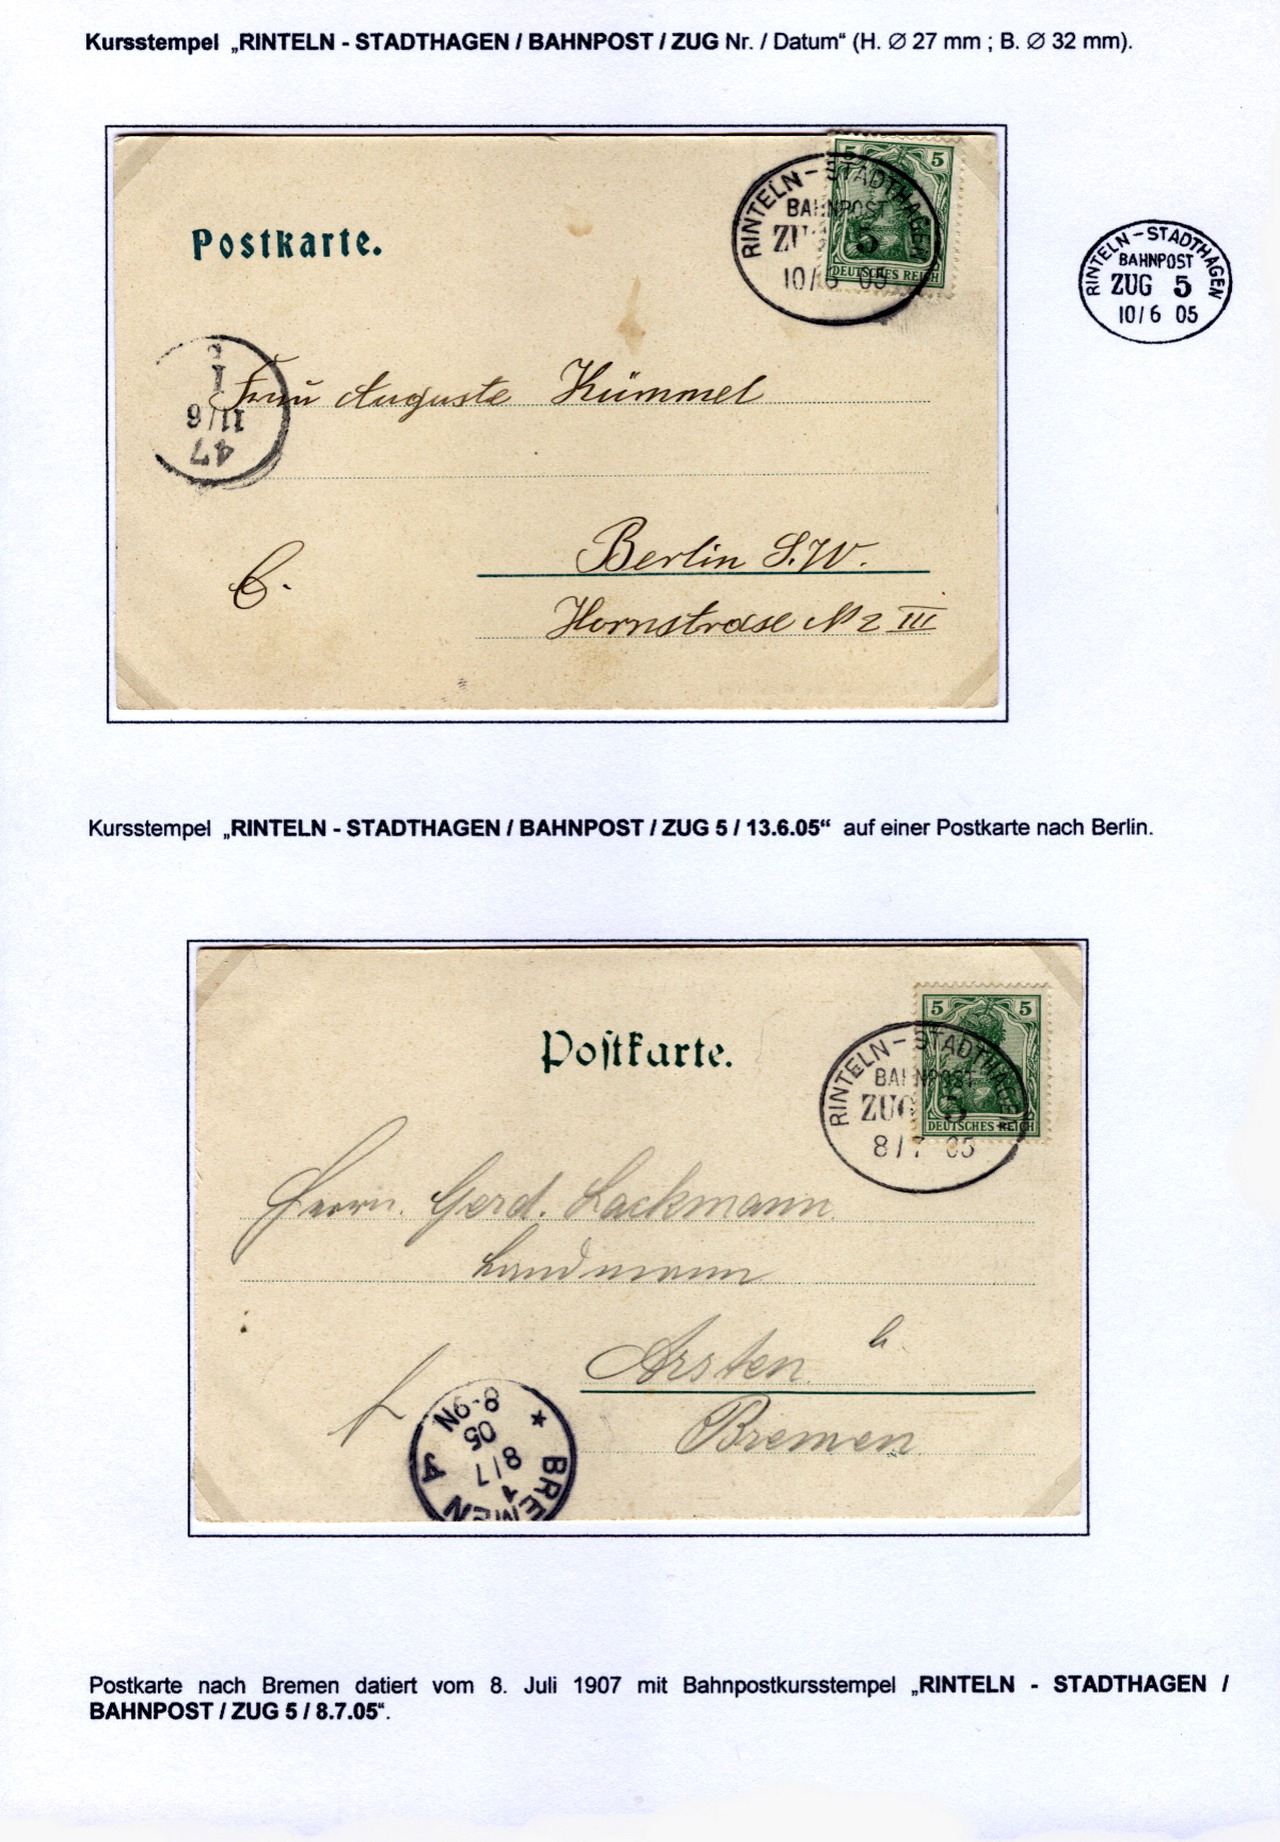 Kursstempel „RINTELN - STADTHAGEN / BAHNPOST / ZUG Nr. / Datum“ (H. Ø 27 mm ; B. Ø 32 mm).
5 5
DEUTSCHES REICH
RINTELN - STADTHAGEN
BAHNPOST
ZUG 5
10/6 05
RINTELN - STADTHAGEN
BAHNPOST
ZUG 5
10/6 05
Postkarte.
1
11/6
47
Frau Auguste Kümmel
Berlin S.W.
Hornstrase N 2 III
Kursstempel „RINTELN - STADTHAGEN / BAHNPOST / ZUG 5 / 13.6.05“ auf einer Postkarte nach Berlin.
5 5
DEUTSCHES REICH
Postkarte.
RINTELN - STADTHAGEN
BAHNPOST
ZUG 5
8/7 05
Herrn. Gerd. Lackmann
Landmann
Arsten
Bremen
BREMEN
1
8/7
05
8-9N
Postkarte nach Bremen datiert vom 8. Juli 1907 mit Bahnpostkursstempel „RINTELN - STADTHAGEN /
BAHNPOST / ZUG 5 / 8.7.05“.